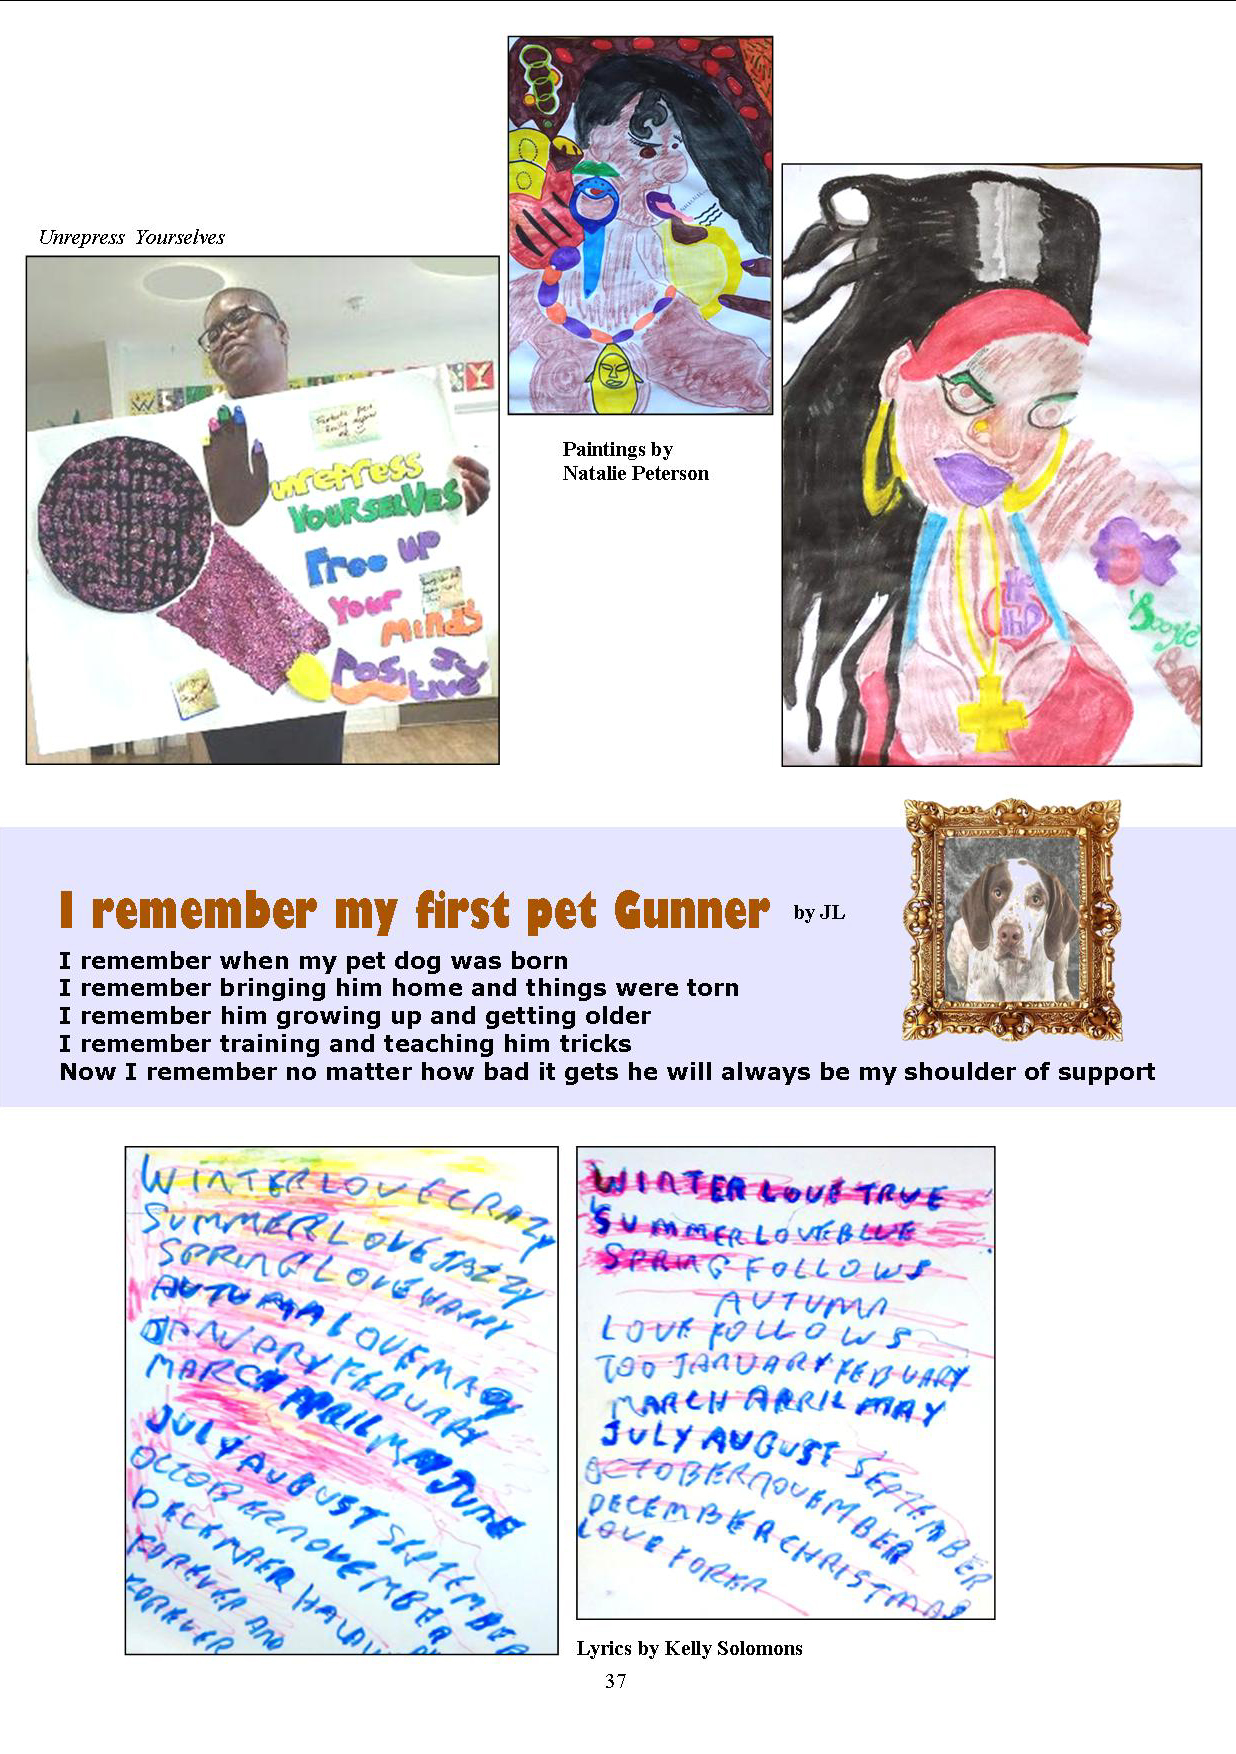 Unrepress Yourselves
unrepress
YOURSELVES
Free UP
Your
Minds
Positive
Paintings by
Natalie Peterson
Boogie
I remember my first pet Gunner by JL
I remember when my pet dog was born
I remember bringing him home and things were torn
I remember him growing up and getting older
I remember training and teaching him tricks
Now I remember no matter how bad it gets he will always be my shoulder of support
WINTER LOVE CRAZY
SUMMER LOVE JAZZY
SPRING LOVE HAPPY
AUTUMN LOVE
FEBUARY
MARCH APRIL MAY JUNE
JULY AUGUST SEPTEMBER
OCTOBER NOVEMBER
DECEMBER
FOREVER AND
FOREVER
WINTER LOVE TRUE
SUMMER LOVE BLUE
SPRING FOLLOWS
AUTUMN
LOVE FOLLOWS
TOO JANUARY FEBUARY
MARCH APRIL MAY
JULY AUGUST SEPTEMBER
OCTOBER NOVEMBER
DECEMBER CHRISTMAS
LOVE
Lyrics by Kelly Solomons
37